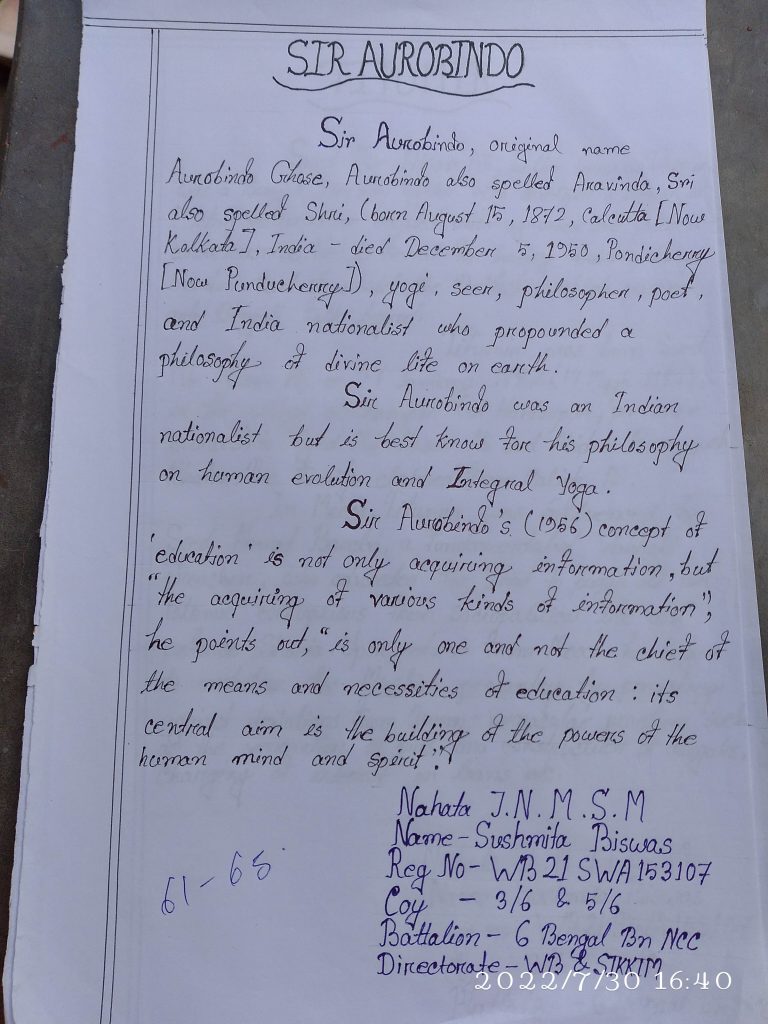 SIR AUROBINDO
Sir Aurobindo, original name
Aurobindo Ghase, Aurobindo also spelled Aravinda, Sri
also spelled Shri, (born August 15, 1872, Calcutta [Now
Kolkata], India - died December 5, 1950, Pondicherry
[Now Punducherry]), yogi, seer, philosopher, poet,
and India nationalist who propounded a
philosophy of divine life on earth.
Sir Aurobindo was an Indian
nationalist but is best know for his philosophy
on human evolution and Integral Yoga.
Sir Aurobindo's (1956) concept of
'education' is not only acquiring information, but
"the acquiring of various kinds of information",
he points out, "is only one and not the chief of
the means and necessities of education : its
central aim is the building of the powers of the
human mind and spirit".
Nahata J.N.M.S.M
Name - Sushmita Biswas
Reg No - WB21SWA153107
Coy - 3/6 & 5/6
Battalion - 6 Bengal Bn NCC
Directorate - WB & SIKKIM
61-65
2022/7/30 16:40